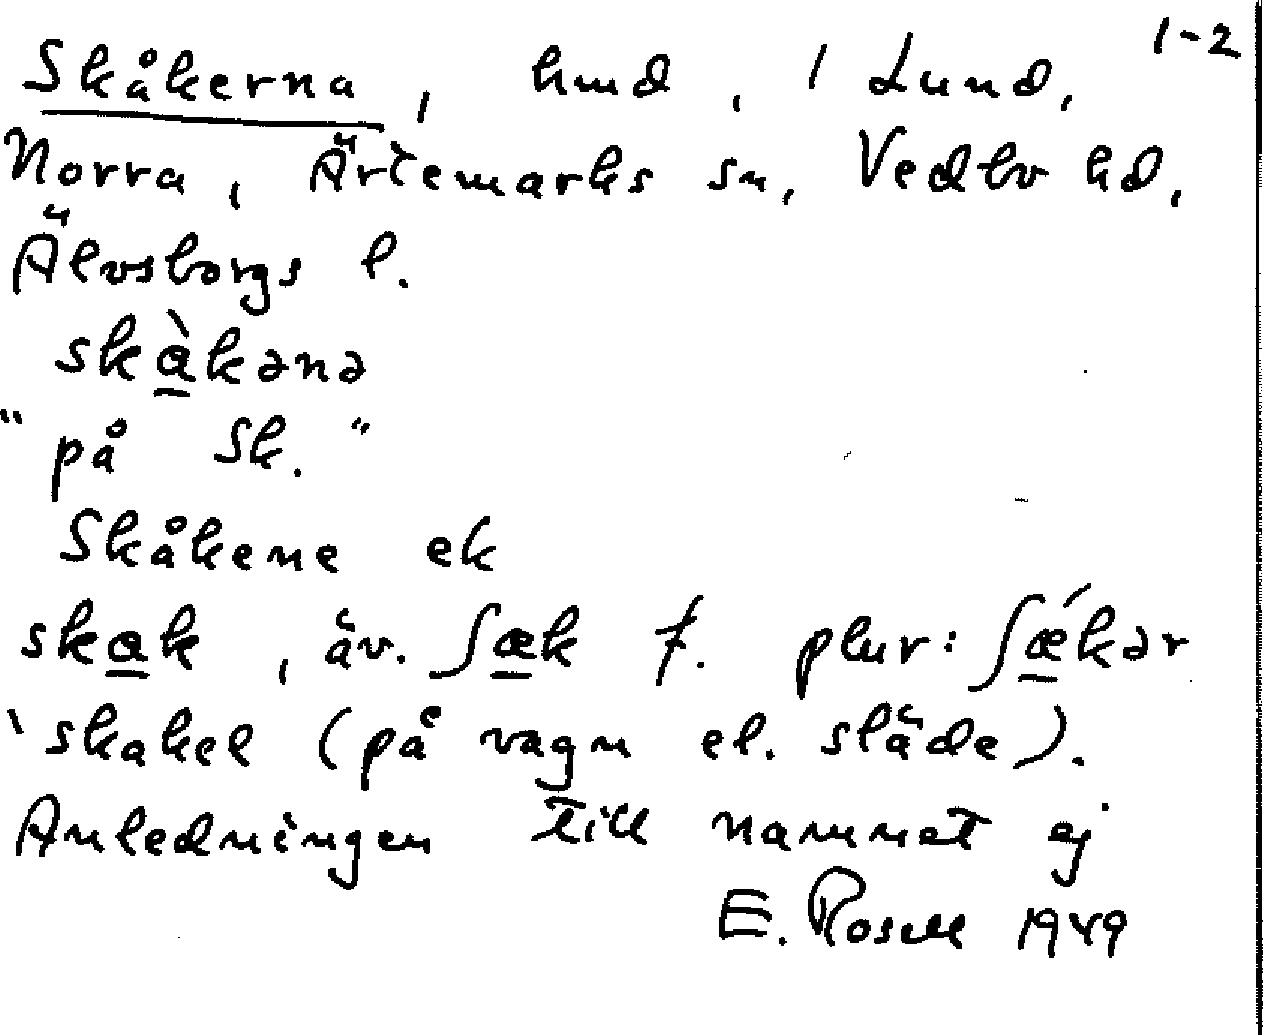 1-2
Skåkerna, hmd, / Lund,
Norra, Ärtemarks sn, Vedbo hd,
Älvsborgs l.
skàkənə
"på Sk."
Skåkene ek
skak, äv. ʃæk f. plur: ʃǽkər
'skakel (på vagn el. släde).
Anledningen till namnet ej
E. Rosell 1949